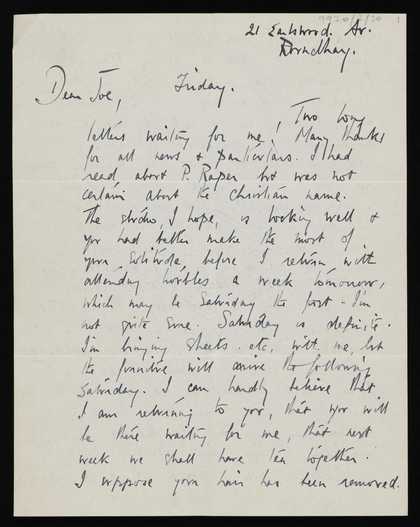 21 Earlswood. Av.
Roundhay.
Friday.
Dear Joe,
Two long
letters waiting for me! Many thanks
for all news & particulars. I had
read about P. Raper but was not
certain about the christian name.
The studio, I hope, is looking well &
you had better make the most of
your solitude before I return with
attending a week tomorrow,
which may be Saturday the first - I'm
not quite sure. Saturday is definite.
I'm bringing sheets. etc. with me, but
the furniture will arrive the following
Saturday. I can hardly believe that
I am returning to you, that you will
be there waiting for me, that next
week we shall have tea together.
I suppose your hair has been removed.